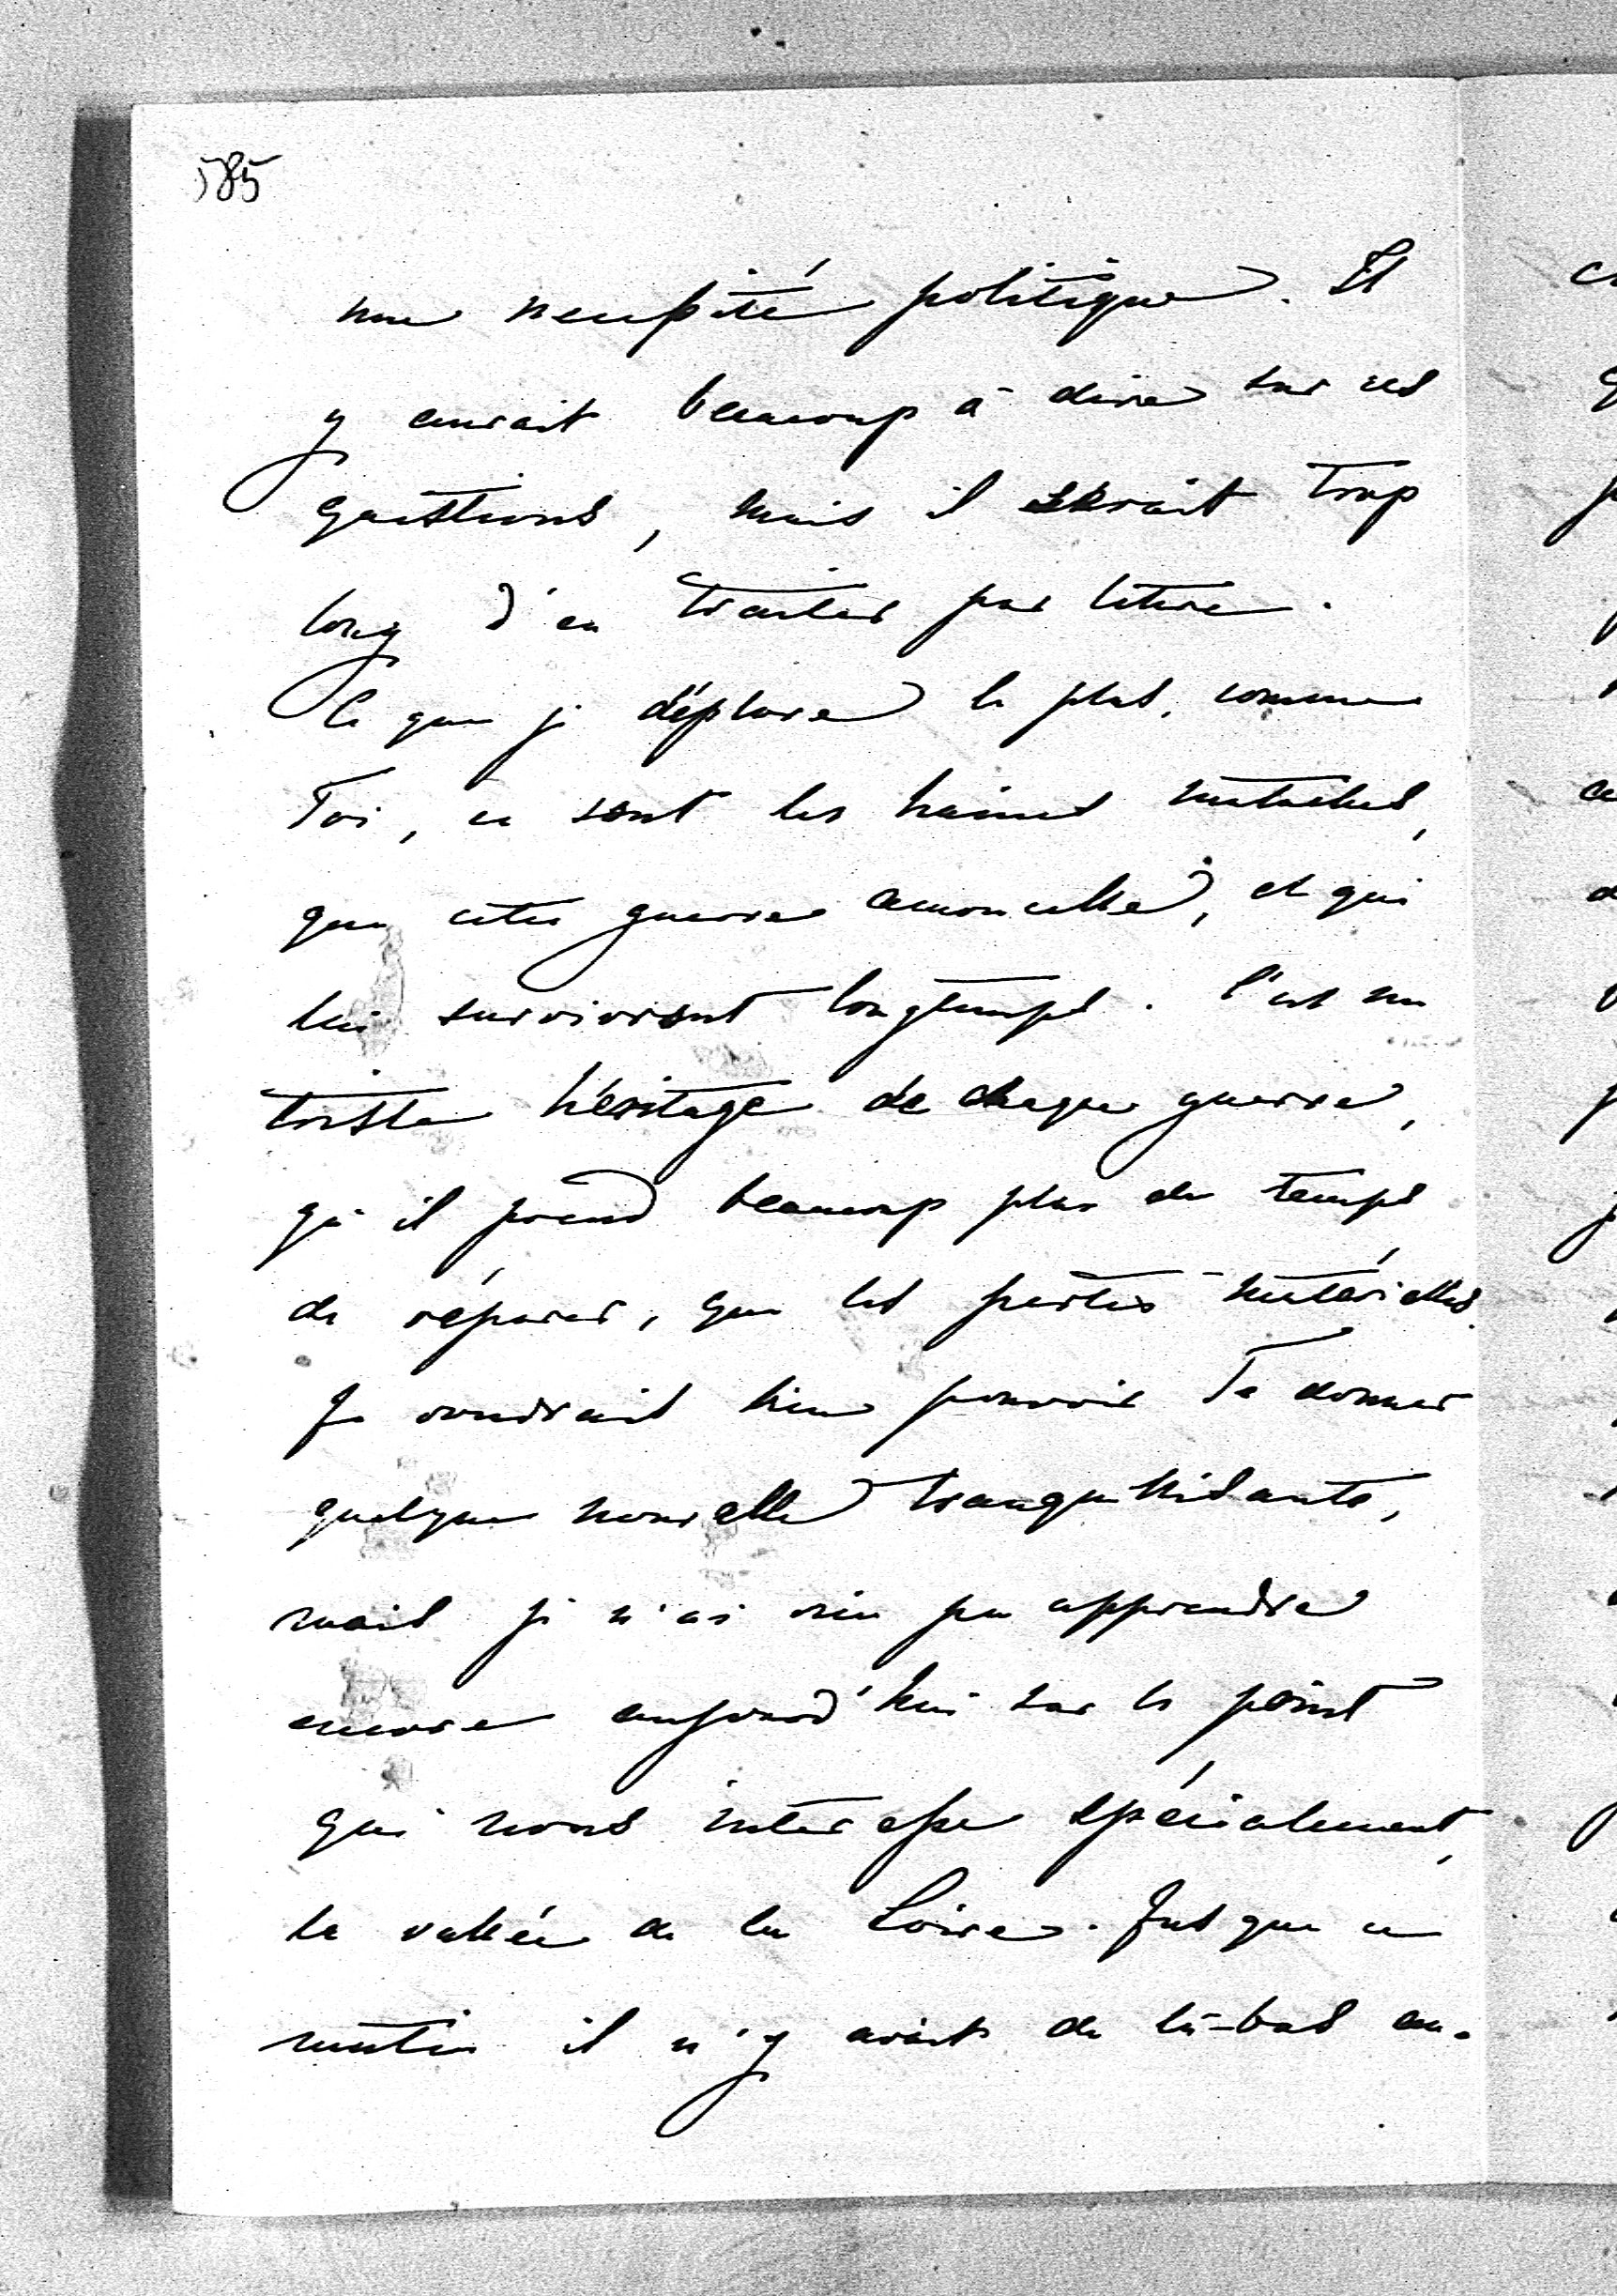 585
une necessité politique. Il
y aurait beaucoup à dire sur ces
questions, mais il serait trop
long d'en traiter par lettre.
Ce que je déplore le plus, comme
Toi, ce sont les haines mutuelles,
que cette guerre amoncelle, et qui
lui survivront longtemps. C'est un
triste héritage de chaque guerre,
qu'il prend beaucoup plus de temps
de réparer, que les pertes matérielles.
Je voudrais bien pouvoir Te donner
quelque nouvelle tranquillisante,
mais je n'ai rien pu apprendre
encore aujourd'hui sur le point
qui nous interesse spécialement,
la vallée de la Loire. Jusque ce
matin il n'y avait de là-bas au-